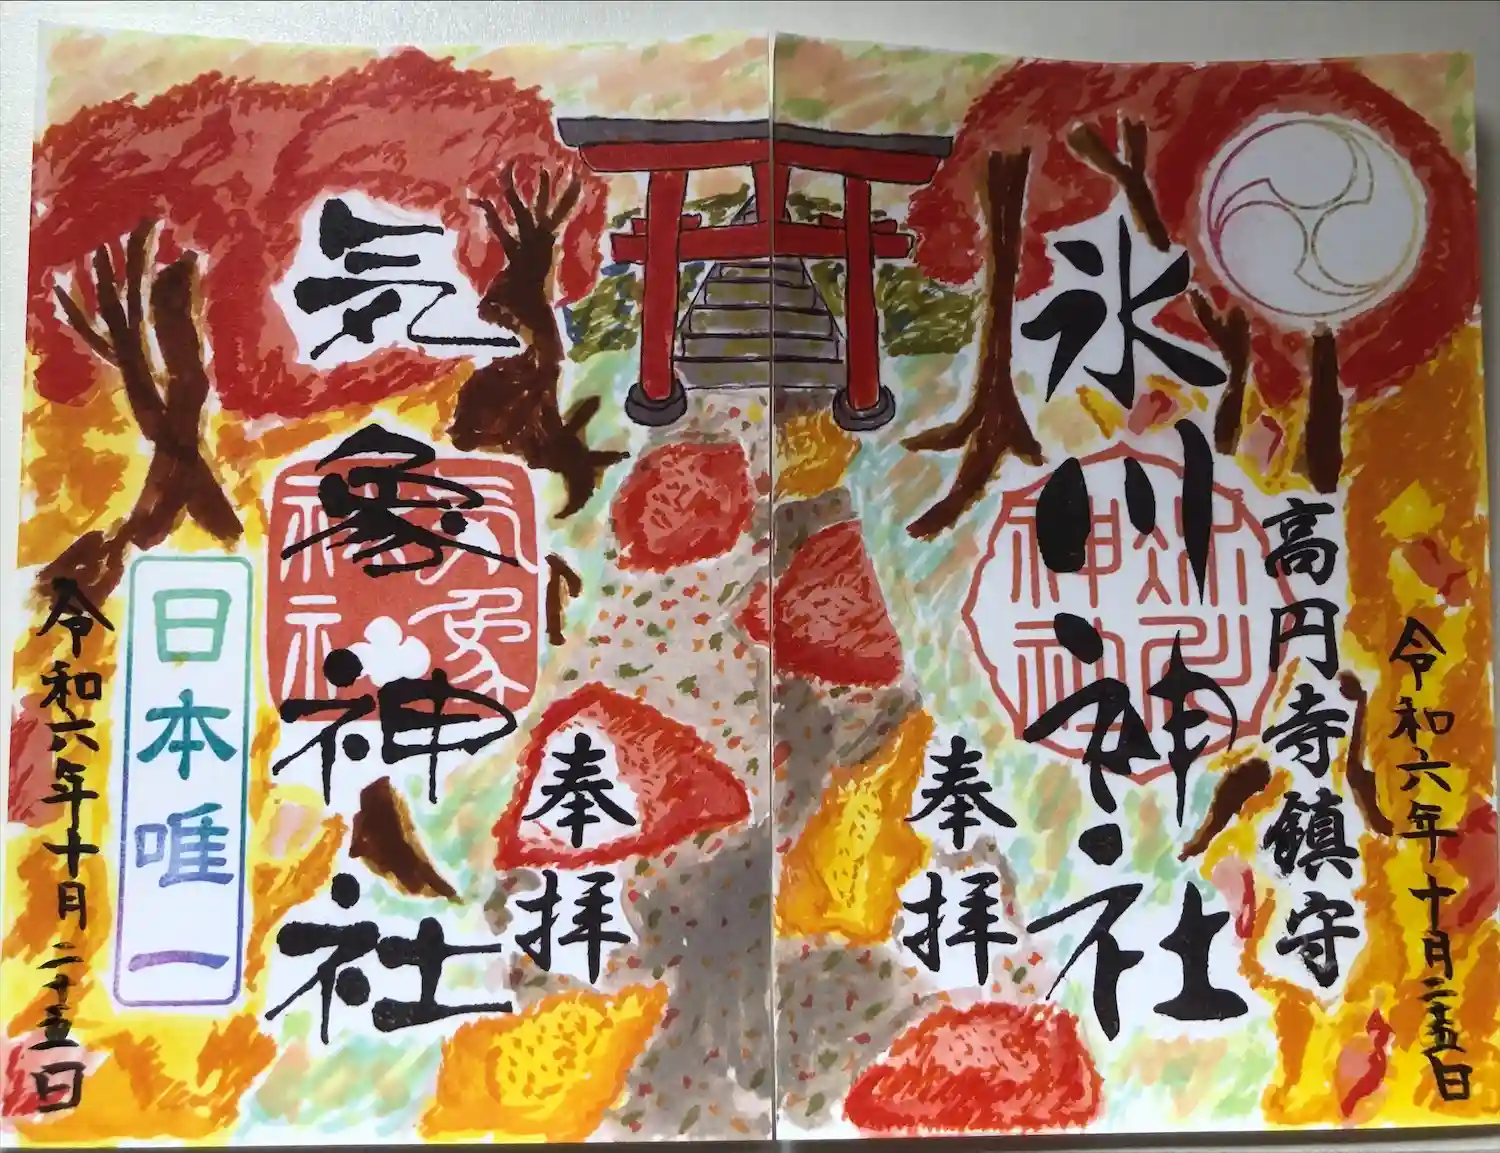 令和六年十月二十五日
高円寺鎮守
氷川神社
氷川神社
奉拝
奉拝
気象神社
気象神社
日本唯一
令和六年十月二十五日